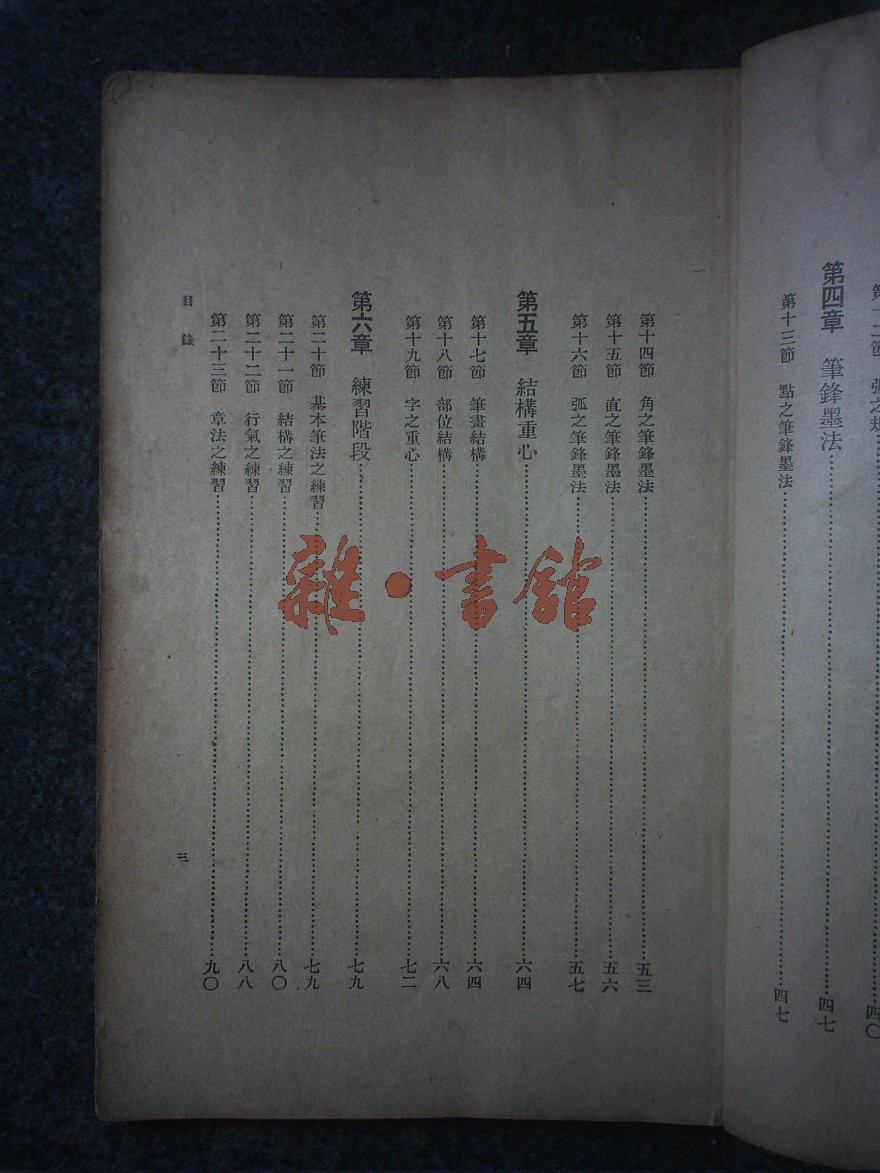 第四章　筆鋒墨法……四七
第十三節　點之筆鋒墨法……四七
第十四節　角之筆鋒墨法……五三
第十五節　直之筆鋒墨法……五六
第十六節　弧之筆鋒墨法……五七
第五章　結構重心……六四
第十七節　筆畫結構……六四
第十八節　部位結構……六八
第十九節　字之重心……七二
第六章　練習階段……七九
第二十節　基本筆法之練習……七九
第二十一節　結構之練習……八〇
第二十二節　行氣之練習……八八
第二十三節　章法之練習……九〇
目錄
三
雜·書館